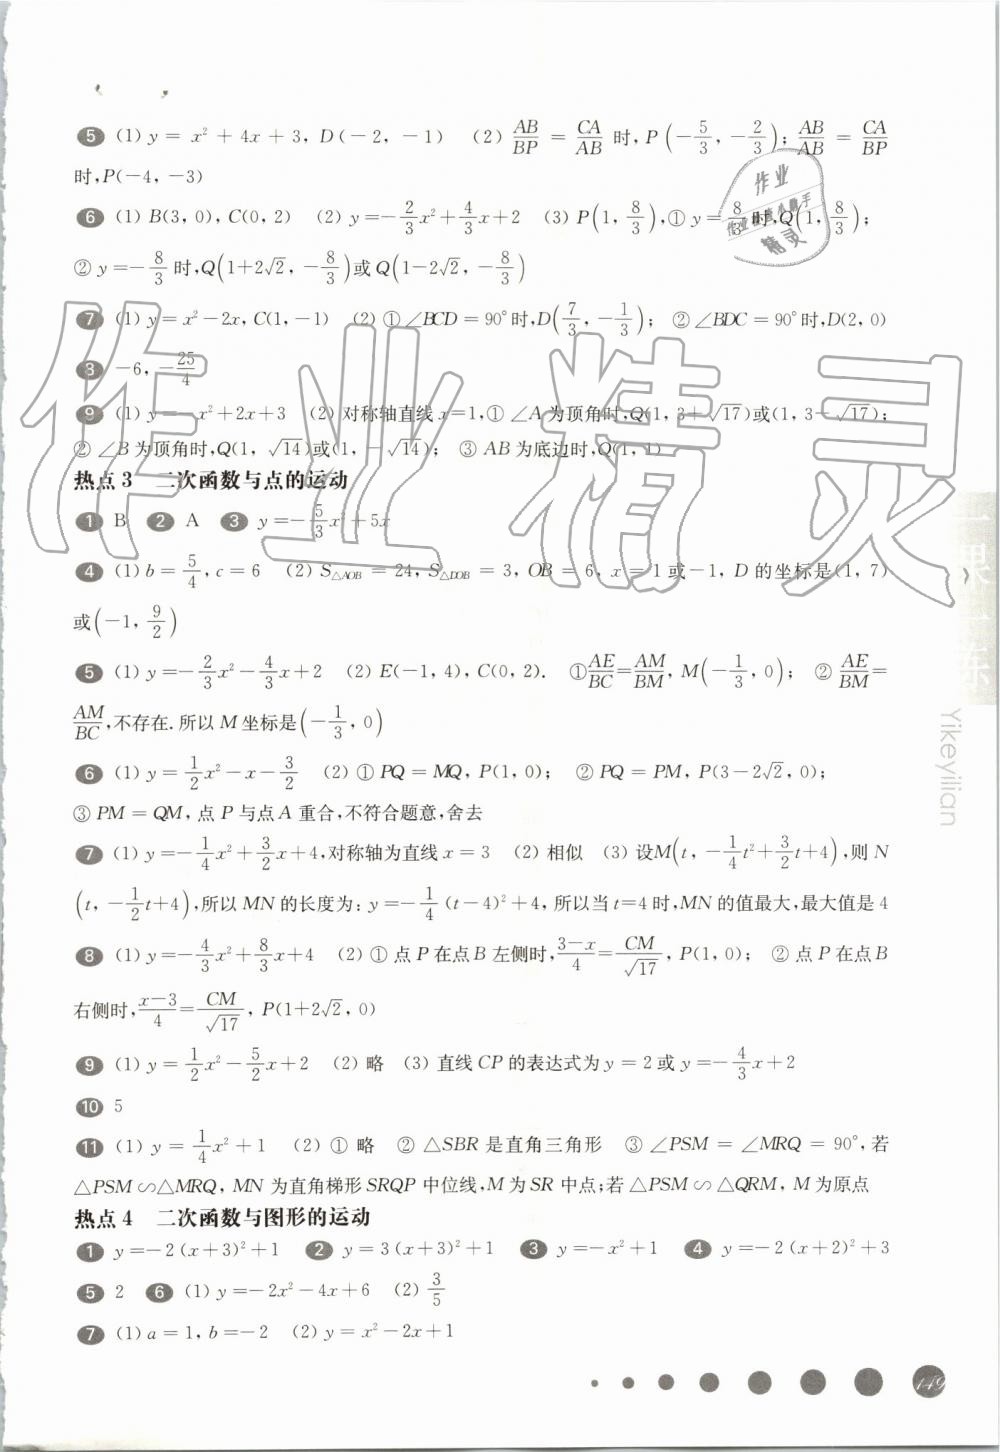 5 (1) y = x² + 4x + 3, D(-2, -1) (2) AB/BP = CA/AB 时, P(-5/3, -2/3); AB/AB = CA/BP
时,P(-4, -3)
6 (1) B(3, 0), C(0, 2) (2) y=-2/3x²+4/3x+2 (3) P(1, 8/3),① y=8/3时,Q(1, 8/3);
② y=-8/3时,Q(1+2√2, -8/3)或Q(1-2√2, -8/3)
7 (1) y=x²-2x, C(1, -1) (2) ①∠BCD = 90°时,D(7/3, -1/3); ②∠BDC = 90°时,D(2, 0)
8 -6, -25/4
9 (1) y=-x²+2x+3 (2) 对称轴直线x=1,① ∠A为顶角时,Q(1, 3+√17)或(1, 3-√17);
② ∠B为顶角时,Q(1, √14)或(1, -√14); ③ AB为底边时,Q(1, 1)
热点3 二次函数与点的运动
1 B 2 A 3 y=-5/3x²+5x
4 (1) b=5/4, c=6 (2) S△AOB = 24, S△DOB = 3, OB = 6, x = 1或-1, D的坐标是(1, 7)
或(-1, 9/2)
5 (1) y=-2/3x²-4/3x+2 (2) E(-1, 4), C(0, 2). ①AE/BC=AM/BM, M(-1/3, 0); ② AE/BM=
AM/BC,不存在.所以M坐标是(-1/3, 0)
6 (1) y=1/2x²-x-3/2 (2) ① PQ = MQ, P(1, 0); ② PQ = PM, P(3-2√2, 0);
③ PM = QM, 点P与点A重合,不符合题意,舍去
7 (1) y=-1/4x²+3/2x+4,对称轴为直线x=3 (2) 相似 (3) 设M(t, -1/4t²+3/2t+4),则N
(t, -1/2t+4),所以MN的长度为: y=-1/4(t-4)²+4, 所以当t=4时,MN的值最大,最大值是4
8 (1) y=-4/3x²+8/3x+4 (2) ① 点P在点B左侧时,3-x/4=CM/√17, P(1, 0); ② 点P在点B
右侧时,x-3/4=CM/√17, P(1+2√2, 0)
9 (1) y=1/2x²-5/2x+2 (2) 略 (3) 直线CP的表达式为y=2或y=-4/3x+2
10 5
11 (1) y=1/4x²+1 (2) ① 略 ② △SBR是直角三角形 ③ ∠PSM = ∠MRQ = 90°,若
△PSM∽△MRQ, MN为直角梯形SRQP中位线,M为SR中点;若△PSM∽△QRM, M为原点
热点4 二次函数与图形的运动
1 y=-2(x+3)²+1 2 y=3(x+3)²+1 3 y=-x²+1 4 y=-2(x+2)²+3
5 2 6 (1) y=-2x²-4x+6 (2) 3/5
7 (1) a=1, b=-2 (2) y=x²-2x+1
149
一课一练
Yikeyilian
作业精灵
作业
精灵